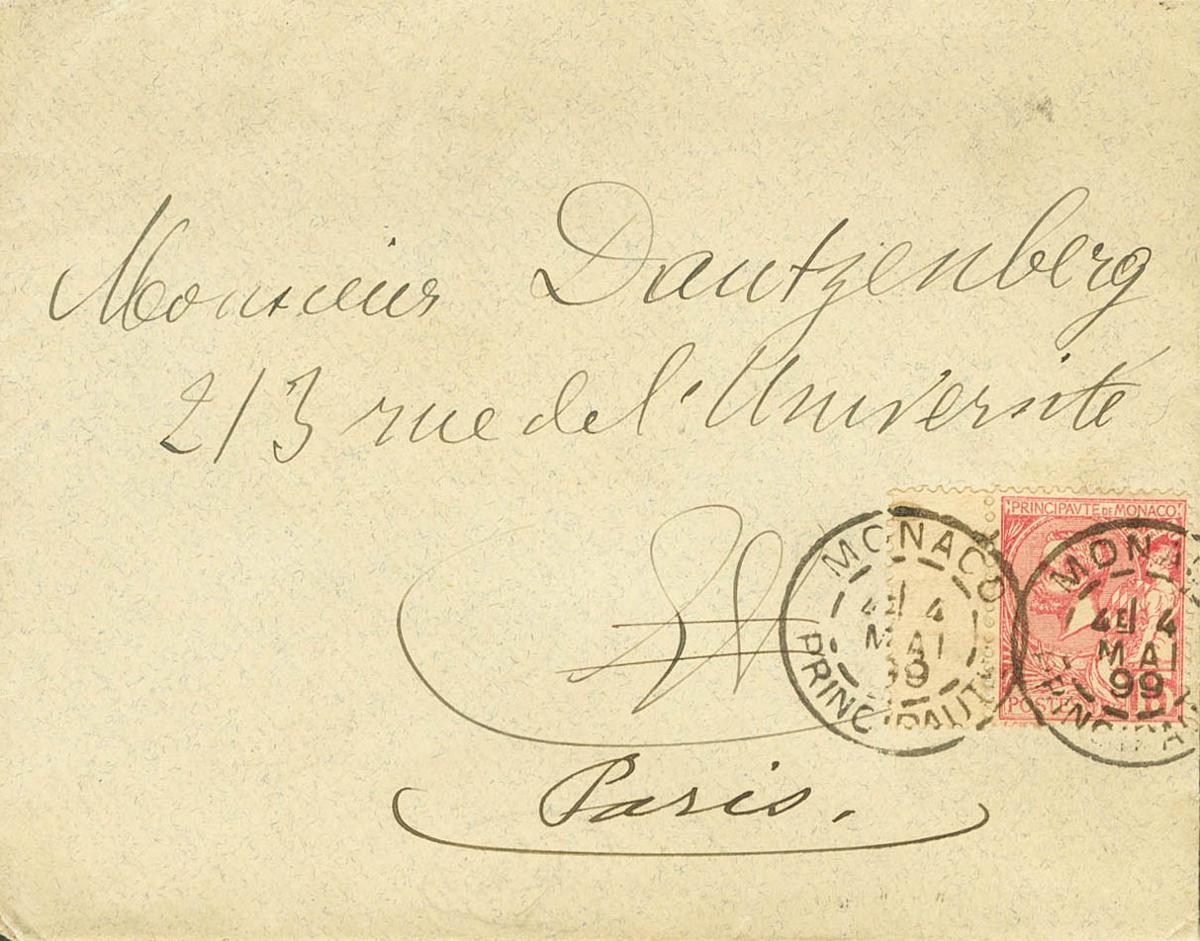 Monsieur Dautzenberg
213 rue de l'Université
Paris.
PRINCIPAVTE DE MONACO
POSTE
15
MONACO
4E 4
MAI
99
PRINCIPAUTÉ
MONACO
4E 4
MAI
99
PRINCIPAUTÉ